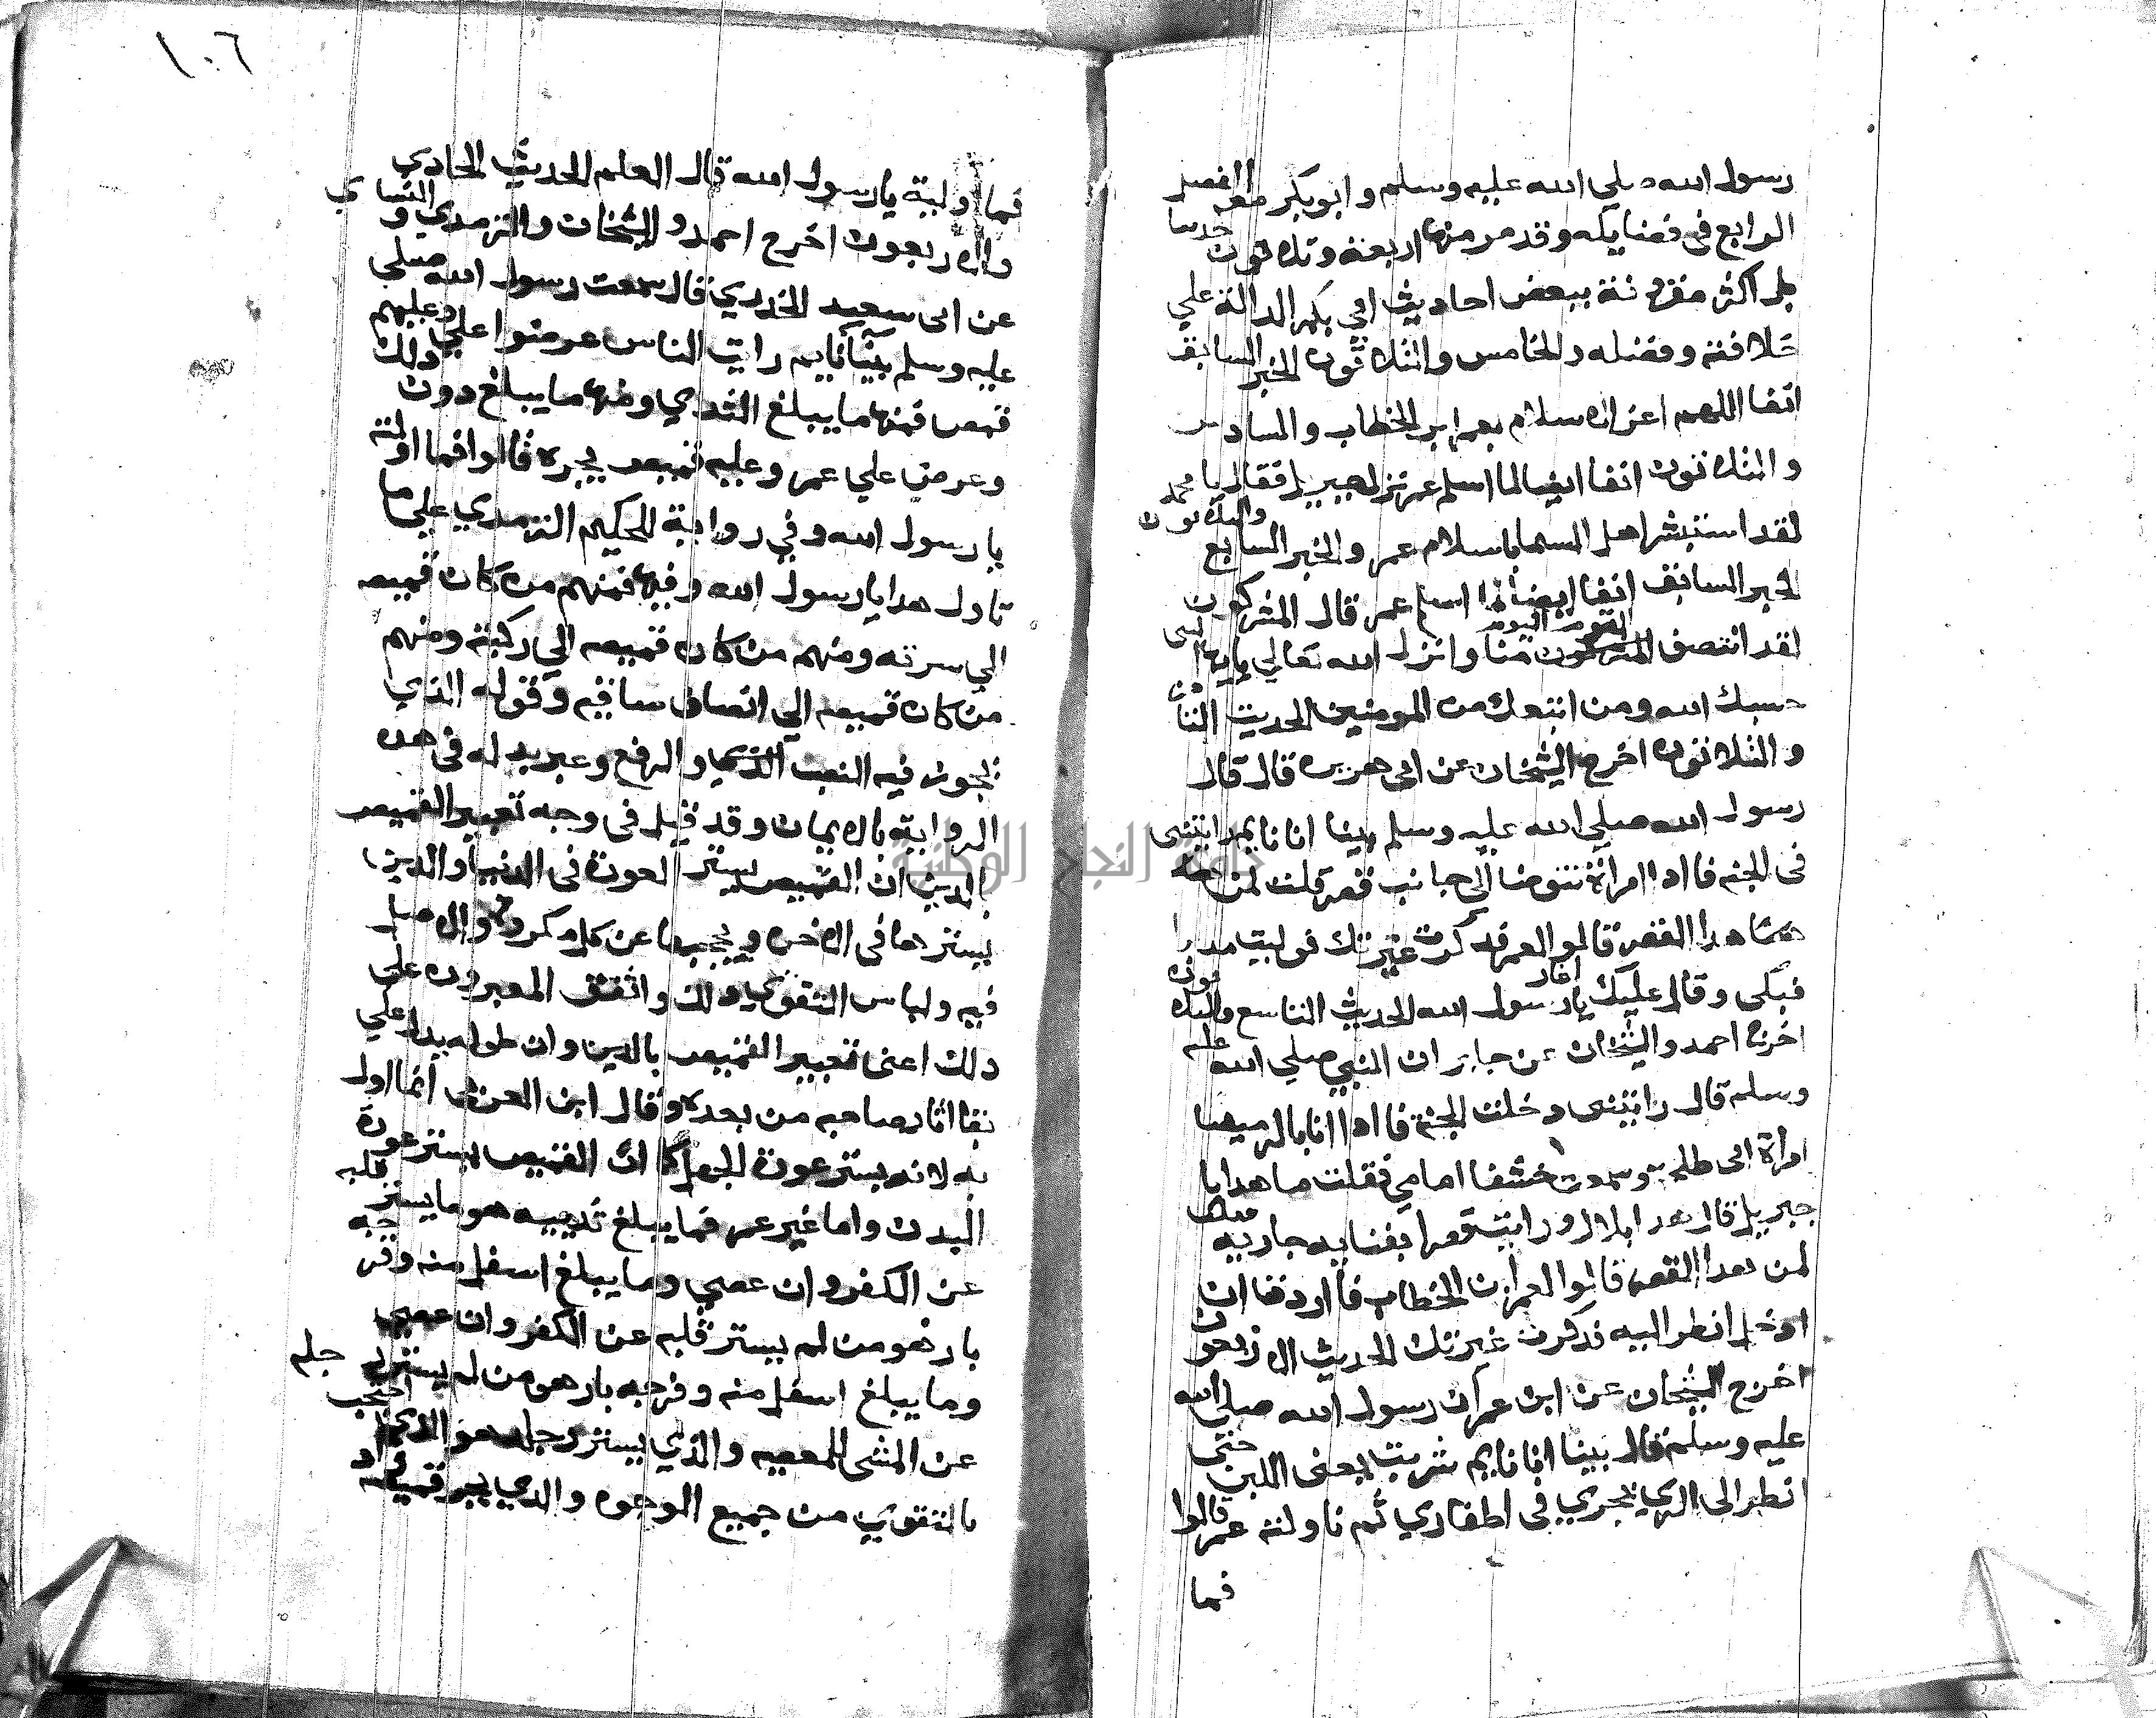 رسول الله صلي الله عليه وسلم وابوبكر معه الفصل
الرابع في فضايله وقد مر منها اربعة وثلاثون حديثا
بل اكثر مقرونة ببعض احاديث ابي بكر الدالة علي
خلافته وفضله والخامس والثلاثون الخبر السابق
انفا اللهم اعز الاسلام بعمر ابن الخطاب والسادس
والثلاثون انفا ايضا لما اسلم عمر نزل جبريل فقال يا محمد
لقد استبشر اهل السما باسلام عمر والخبر السابع والثلاثون
الخبر السابق انفا ايضا لما اسلم عمر قال المشركون
لقد انتصف القوم اليوم منا وانزل الله تعالي يايها النبي
حسبك الله ومن اتبعك من المومنين الحديث الثامن
والثلاثون اخرج الشيخان عن ابي هريره قال قال
رسول الله صلي الله عليه وسلم بينا انا نايم رايتني
في الجنه فاذا امراة تتوضا الى جانب قصر قلت لمن
هذا القصر قالوا لعمر فذكرت غيرتك فوليت مدبرا
فبكى وقال عليك اغار يارسول الله الحديث التاسع والثلاثون
اخرج احمد والشيخان عن جابر ان النبي صلي الله عليه
وسلم قال رايتنى دخلت الجنه فاذا انا بالرميصا
امراة ابى طلحه وسمعت خشفا امامي فقلت ما هذا يا
جبريل قال هذا بلال ورايت قصرا بفنايه جاريه فقلت
لمن هذا القصر قالوا لعمر بن الخطاب فاردت ان
ادخل انظر اليه فذكرت غيرتك الحديث الاربعون
اخرج الشيخان عن ابن عمر ان رسول الله صلي الله
عليه وسلم قال بينا انا نايم شربت يعنى اللبن حتى
انظر الى الري يجري في اظفاري ثم ناولته عمر قالوا
فما
١٠٦
فما اولته يارسول الله قال العلم الحديث الحادي
والاربعون اخرج احمد والشيخان والترمدي والنساي
عن ابى سعيد الخدري قال سمعت رسول الله صلي
عليه وسلم بينا انا نايم رايت الناس عرضوا علي وعليهم
قمص فمنها ما يبلغ الثدي ومنها ما يبلغ دون ذلك
وعرض علي عمر وعليه قميص يجره قالوا فما اولته
يا رسول الله وفي رواية للحكيم الترمدي علي ما
تاول هدا يارسول الله وفيها فمنهم من كان قميصه
الي سرته ومنهم من كان قميصه الي ركبته ومنهم
من كان قميصه الي انصاف ساقيه وقوله الذي
يجوز فيه النصب والرفع وعبر بدله في هده
الرواية بالايمان وقد قيل في وجه تعبير القميص
بالدين ان القميص يستر العورة في الدنيا والدين
يسترها في الاخره ويحجبها عن كل مكروه والاصل
فيه ولباس التقوي ذلك واتفق المعبرون علي
دلك اعنى تعبير القميص بالدين وان طوله يدل علي
بقا اثار صاحبه من بعده وقال ابن العربي انما اول
به لانه يستر عورة الجهل كما ان القميص يستر عورة
البدن واما غير عمر فما يبلغ ثدييه هو ما يستر قلبه
عن الكفر وان عصي وما يبلغ اسفل منه وفرجه
بار فهو من لم يستر قلبه عن الكفر وان عصي
وما يبلغ اسفل منه وفرجه بار هو من لم يستر رجله
عن المشى للمعصيه والذي يستر رجله هو الذي احتجب
بالتقوي من جميع الوجوه والدي يجر قميصه زاد